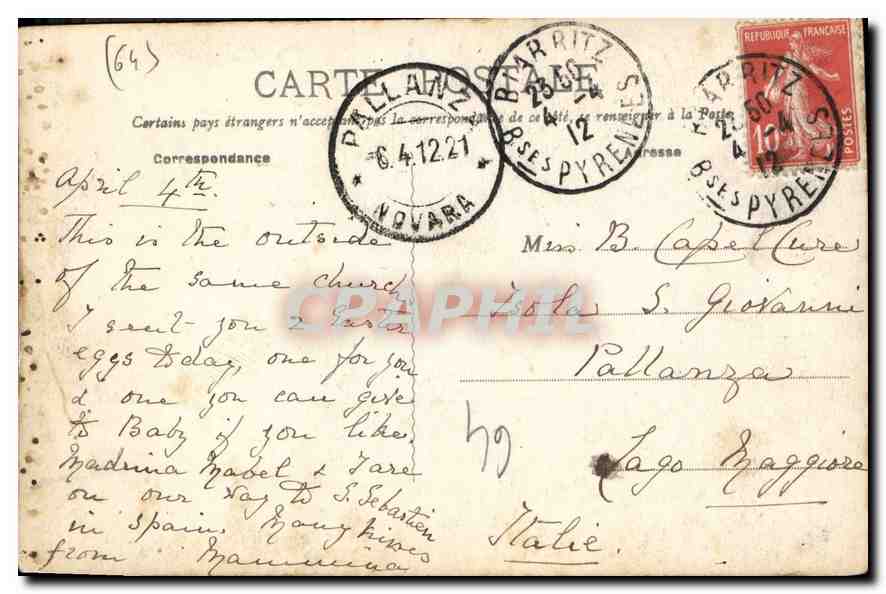 (64)
CARTE POSTALE
Certains pays étrangers n'acceptant pas la correspondance de ce côté, se renseigner à la Poste
Correspondance
Adresse
PALLANZA
6.4.12.21
NOVARA
BIARRITZ
23 50
4 - 4
12
Bses PYRENEES
REPUBLIQUE FRANÇAISE
10
POSTES
BIARRITZ
23 50
4 - 4
12
Bses PYRENEES
April 4th.
This is the outside
of the same church
I sent you 2 Easter
eggs today, one for you
& one you can give
to Baby if you like.
Madrina Mabel &
on our way to S. Sebastien
in Spain. Many kisses
from Mammina
Miss B. Capel Cure
Isola S. Giovanni
Pallanza
Lago Maggiore
Italie.
64
CPAPHIL